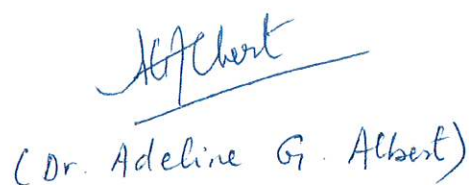 AGAlbert
(Dr. Adeline G. Albert)